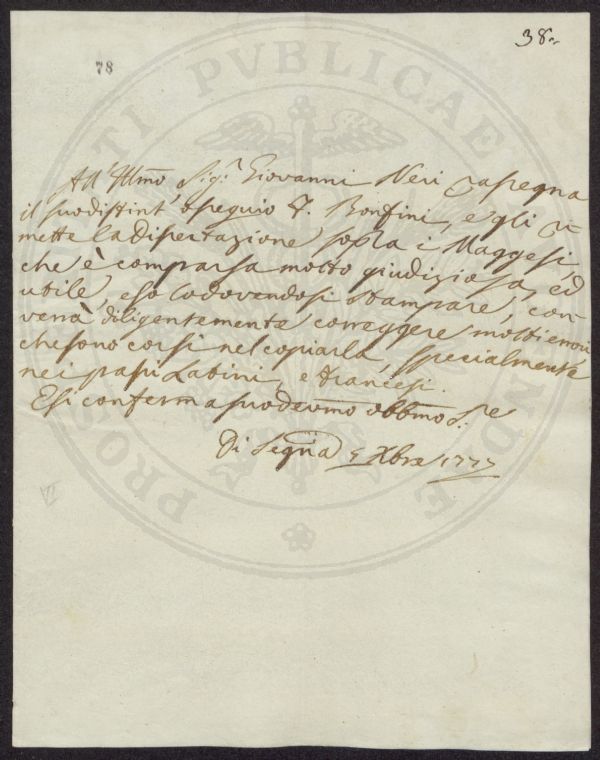 38
78
All' Illmo Sigr Giovanni Neri rasegna
il suo distint' osequio T. Bonfini, e gli ri-
mette la disertazione sopra i Maggesi,
che è comparsa molto giudiziosa, ed
utile, e solo dovendosi stampare, con-
verrà diligentemente correggere molti errori
che sono corsi nel copiarla, specialmente
nei pasi Latini, e Francesi.
E si conferma suo devmo obbmo Se
Di Segria Xbre 1777
PROSPERITATI PVBLICAE AVGENDAE